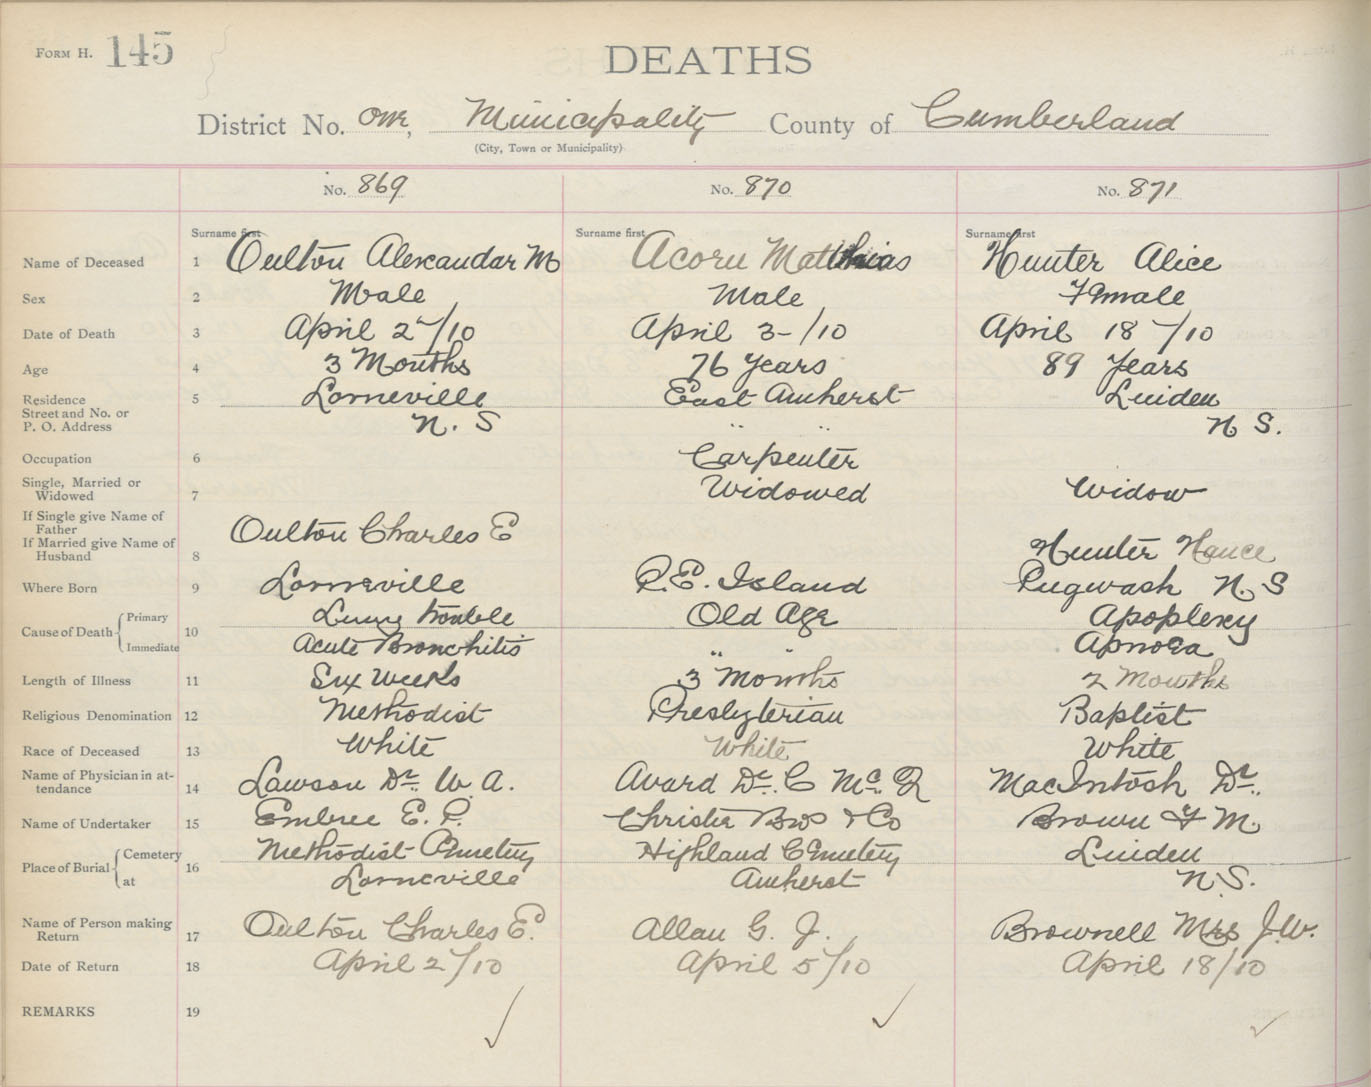 FORM H. 145
DEATHS
District No. One, Municipality County of Cumberland
(City, Town or Municipality)
No. 869 No. 870 No. 871
Surname first Surname first Surname first
Name of Deceased 1 Oulton Alexandar M Acorn Matthias Hunter Alice
Sex 2 Male Male Female
Date of Death 3 April 2-/10 April 3-/10 April 18-/10
Age 4 3 Months 76 Years 89 Years
Residence 5 Lorneville East Amherst Linden
Street and No. or
P. O. Address N. S " " N S.
Occupation 6 Carpenter
Single, Married or
Widowed 7 Widowed Widow
If Single give Name of
Father Oulton Charles E
If Married give Name of
Husband 8 Hunter Hance
Where Born 9 Lorneville P.E. Island Pugwash N. S
Cause of Death 10
Primary Lung trouble Old Age Apoplexy
Immediate Acute Bronchitis " " Apnoea
Length of Illness 11 Six Weeks 3 Months 2 Months
Religious Denomination 12 Methodist Presbyterian Baptist
Race of Deceased 13 White White White
Name of Physician in at-
tendance 14 Lawson Dr. W. A. Avard Dr. C Mc. Q MacIntosh Dr.
Name of Undertaker 15 Embree E. P. Christie Bros & Co Brown F M.
Place of Burial 16
Cemetery Methodist Cemetery Highland Cemetery Linden
at Lorneville Amherst N.S.
Name of Person making
Return 17 Oulton Charles E. Allan G. J. Brownell Mrs J.W.
Date of Return 18 April 2/10 April 5/10 April 18/10
REMARKS 19